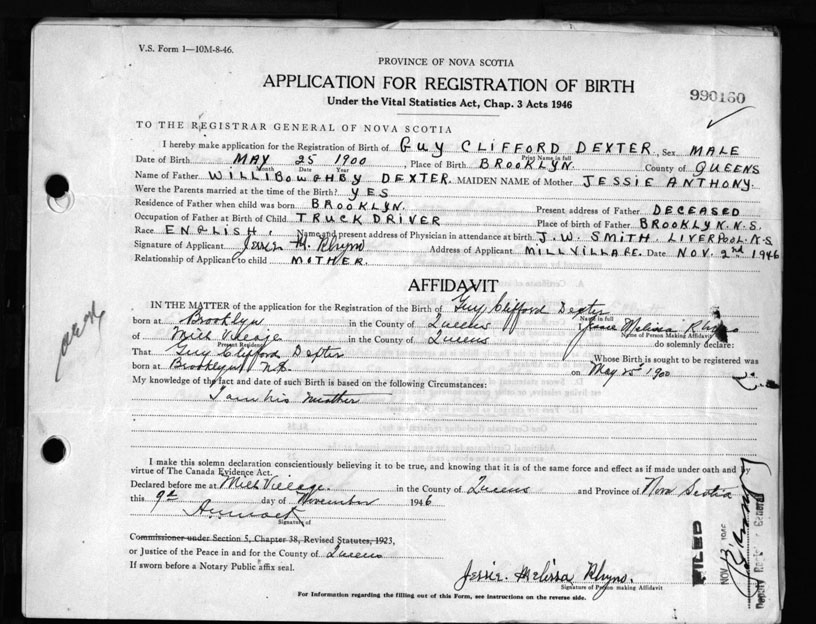 V.S. Form 1—10M-8-46.
PROVINCE OF NOVA SCOTIA
APPLICATION FOR REGISTRATION OF BIRTH
990160
Under the Vital Statistics Act, Chap. 3 Acts 1946
TO THE REGISTRAR GENERAL OF NOVA SCOTIA
I hereby make application for the Registration of Birth of GUY CLIFFORD DEXTER, Sex MALE
Print Name in full
Date of Birth MAY 25 1900, Place of Birth BROOKLYN. County of QUEENS
Month Date Year
Name of Father WILLIBOUGHBY DEXTER. MAIDEN NAME of Mother JESSIE ANTHONY.
Were the Parents married at the time of the Birth? YES
Residence of Father when child was born BROOKLYN. Present address of Father DECEASED
Occupation of Father at Birth of Child TRUCK DRIVER Place of birth of Father BROOKLYN. N.S.
Race ENGLISH. Name and present address of Physician in attendance at birth J.W. SMITH. LIVERPOOL. N.S
Signature of Applicant Jessie M. Rhyno Address of Applicant MILL VILLAGE. Date NOV. 2nd 1946
Relationship of Applicant to child MOTHER.
AFFIDAVIT
IN THE MATTER of the application for the Registration of Birth of Guy Clifford Dexter
Name in full
born at Brooklyn in the County of Queens Jessie Melissa Rhyno
Name of Person Making Affidavit
of Mill Village in the County of Queens do solemnly declare:
Present Residence
That Guy Clifford Dexter Whose Birth is sought to be registered was
born at Brooklyn N.S. on May 25 1900
My knowledge of the fact and date of such Birth is based on the following Circumstances:
I am his mother
I make this solemn declaration conscientiously believing it to be true, and knowing that it is of the same force and effect as if made under oath and by
virtue of The Canada Evidence Act.
Declared before me at Mill Village. in the County of Queens and Province of Nova Scotia
this 9th day of November 1946
Signature of
Commissioner under Section 5, Chapter 38, Revised Statutes, 1923,
or Justice of the Peace in and for the County of Queens
If sworn before a Notary Public affix seal.
Jessie. Melissa Rhyno.
Signature of Person making Affidavit
For Information regarding the filling out of this Form, see instructions on the reverse side.
FILED
NOV 13 1946
Deputy Registrar General